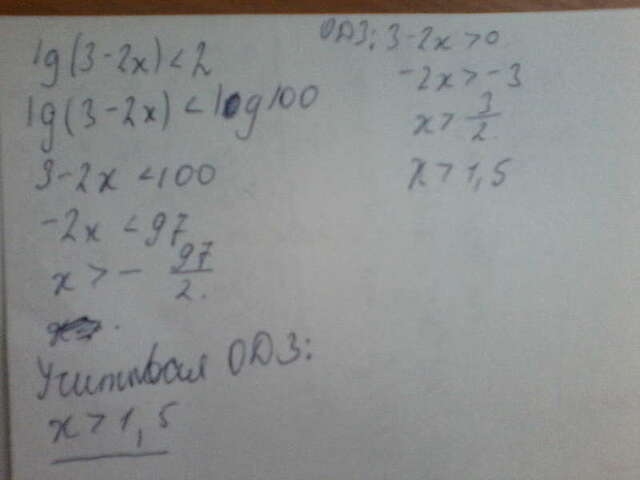 lg(3-2x)<2
lg(3-2x)<log100
3-2x<100
-2x<97
x>-97/2.
Учитывая ОДЗ:
x>1,5
ОДЗ: 3-2x>0
-2x>-3
x>3/2.
x>1,5